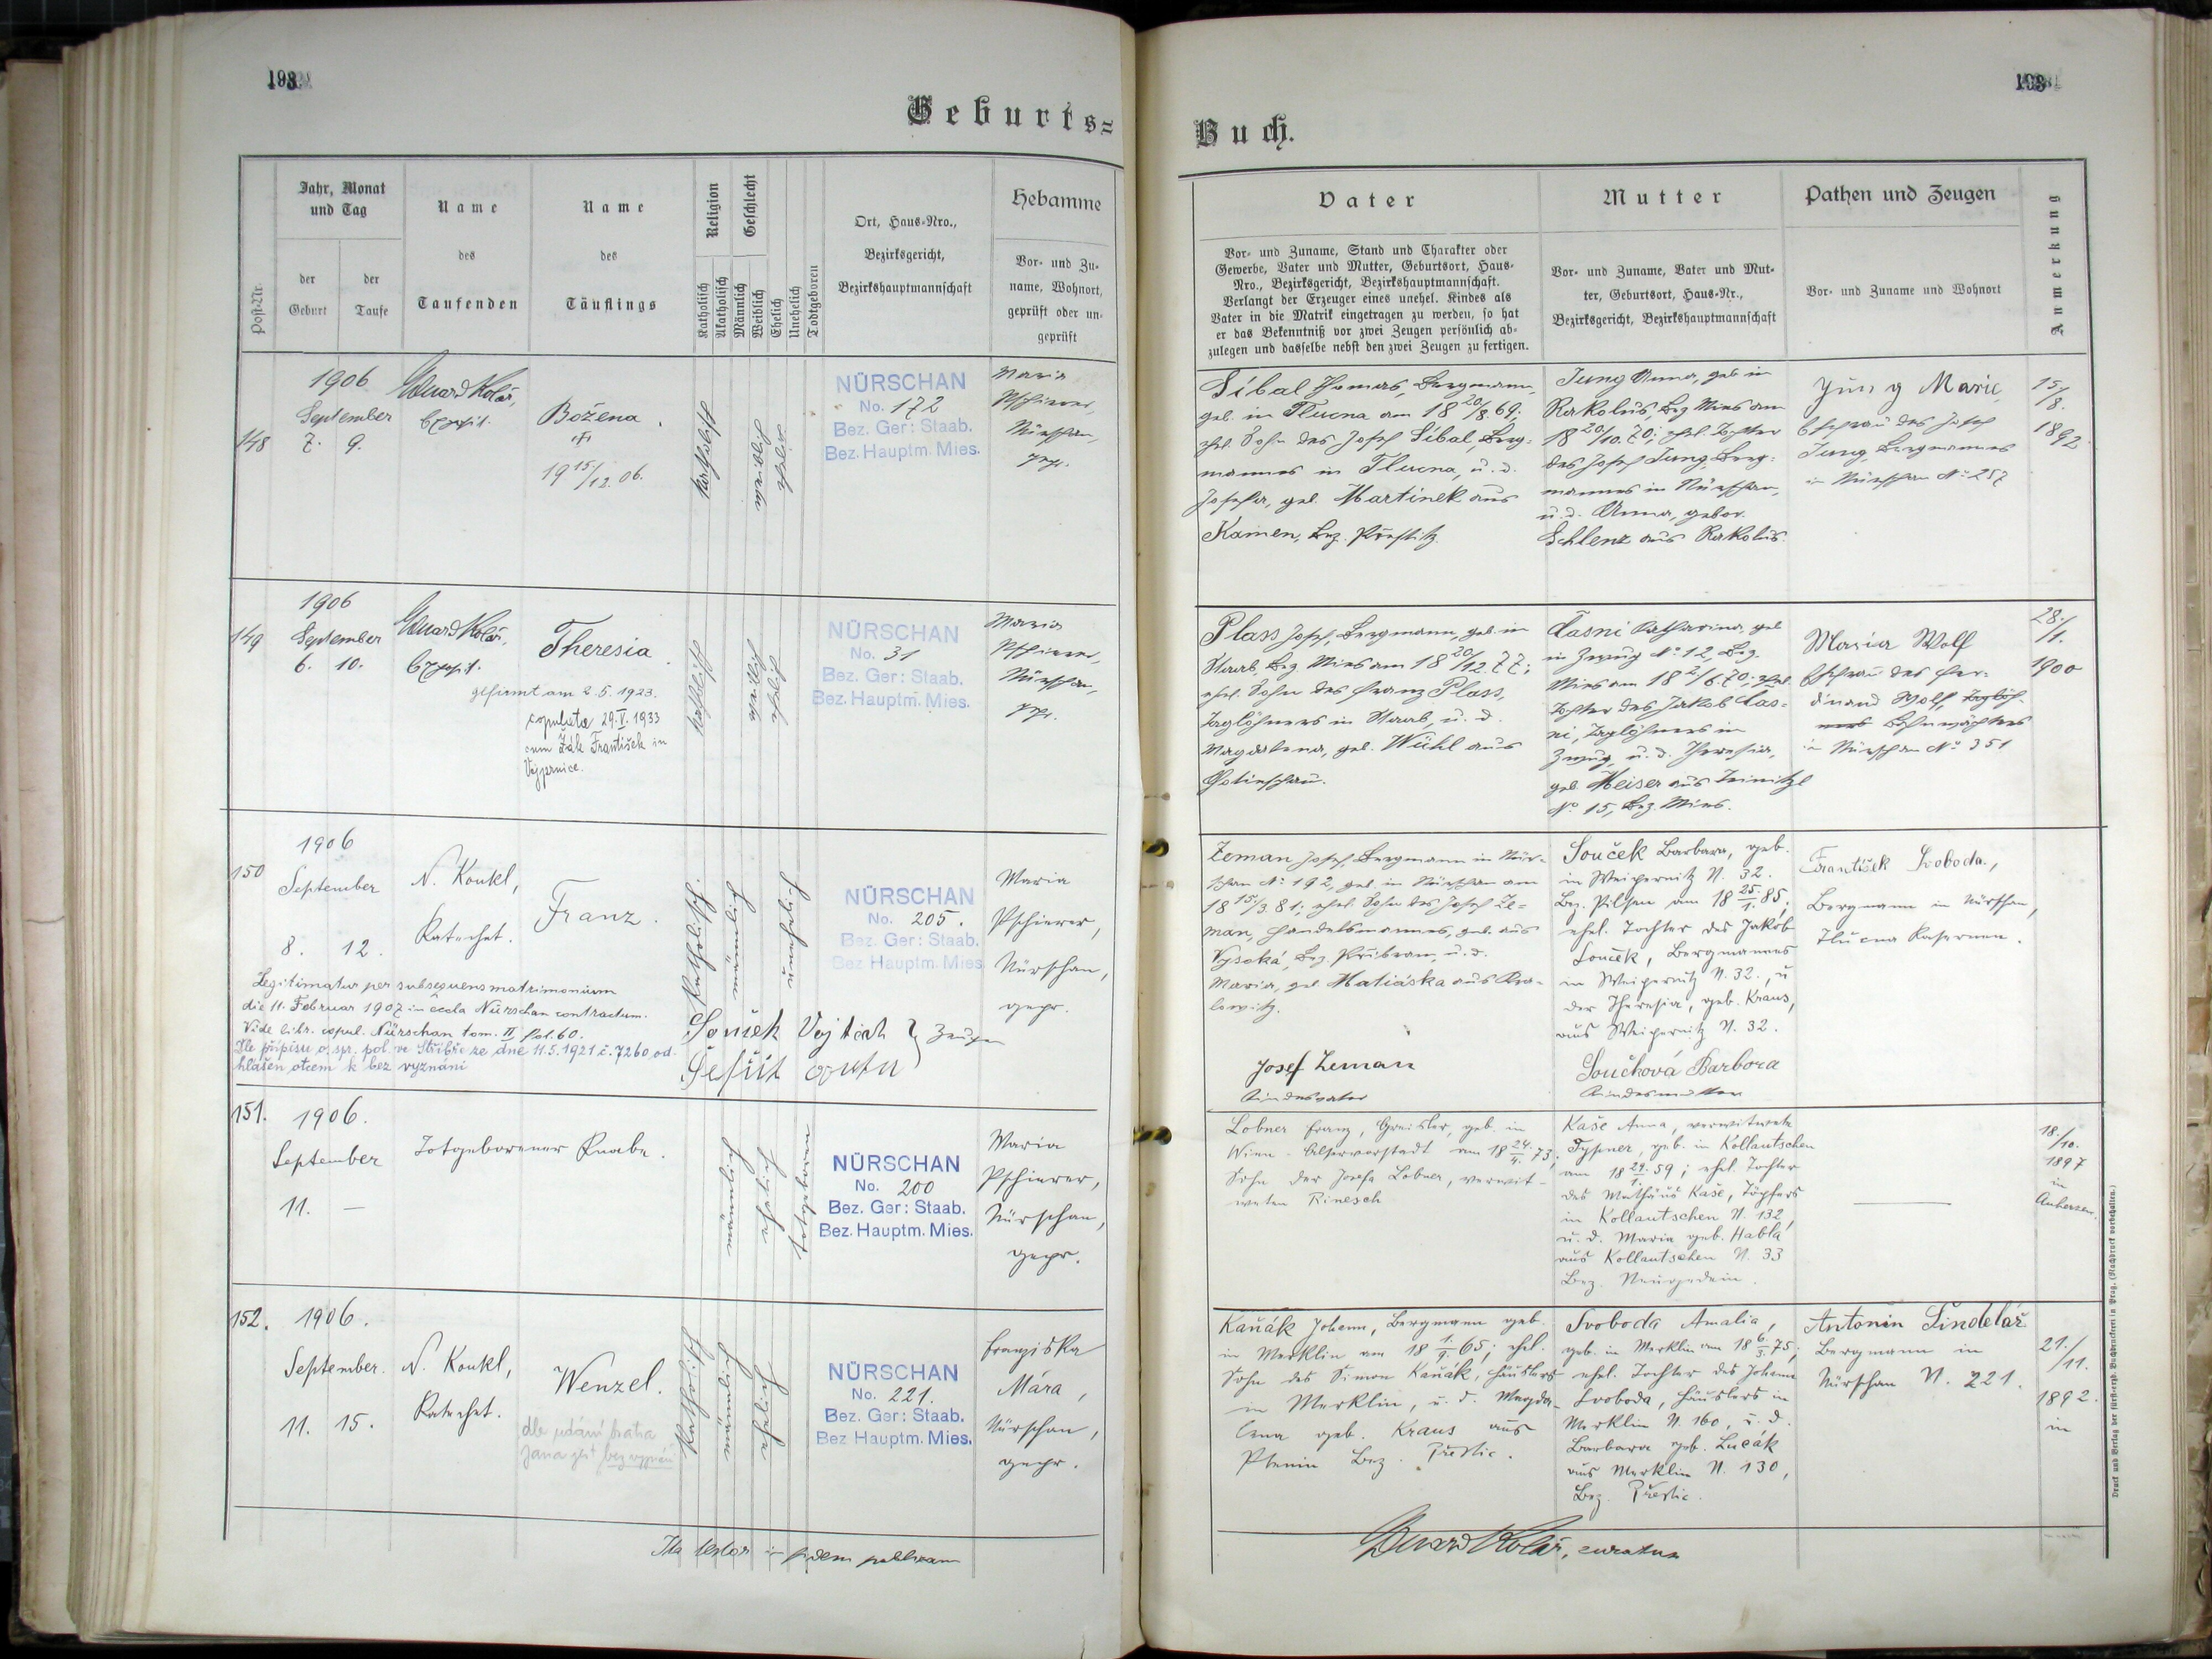 193
Geburts=
Jahr, Monat und Tag
der Geburt
der Taufe
Post-Nr.
Name des Taufenden
Name des Täuflings
Religion
Katholisch
Akatholisch
Geschlecht
Männlich
Weiblich
Ehelich
Unehelich
Todtgeboren
Ort, Haus-Nro.,
Bezirksgericht,
Bezirkshauptmannschaft
Hebamme
Vor- und Zu-
name, Wohnort,
geprüft oder un-
geprüft
148
1906
September
7. 9.
Eduard Kolář,
Božena
19 15/12. 06.
katholisch
NÜRSCHAN
No. 172
Bez. Ger: Staab.
Bez. Hauptm. Mies.
Maria
Pschierer,
Nürschan,
gepr.
149
1906
September
6. 10.
Eduard Kolář,
Theresia
gefirmt am 2.5.1923.
copulata 29.V.1933
cum Žák František in
Vejprnice.
katholisch
NÜRSCHAN
No. 31
Bez. Ger: Staab.
Bez. Hauptm. Mies.
Maria
Pschierer,
Nürschan,
gepr.
150
1906
September
8. 12.
N. Koukl,
Katechet.
Franz.
Legitimatur per subsequens matrimonium
die 11. Februar 1907 in eccla Nürschan contractum.
Vide libr. copul. Nürschan tom. II fol. 60.
Dle přípisu o. spr. pol. ve Stříbře ze dne 11.5.1921 č. 7260 od-
hlášen otcem k bez vyznání
Katholisch.
männlich
unehelich
Souček Vojtěch } Zeugen
NÜRSCHAN
No. 205.
Bez. Ger: Staab.
Bez Hauptm. Mies
Maria
Pschierer,
Nürschan,
gepr.
151.
1906.
September
11. —
Totgeborener Knabe.
männlich
ehelich
totgeboren
NÜRSCHAN
No. 200
Bez. Ger: Staab.
Bez. Hauptm. Mies.
Maria
Pschierer,
Nürschan,
gepr.
152.
1906.
September.
11. 15.
N. Koukl,
Katechet.
Wenzel.
dle udání bratra
Jana je bez vyznání
Katholisch
männlich
ehelich
NÜRSCHAN
No. 221.
Bez. Ger: Staab.
Bez Hauptm. Mies.
Franziska
Mára,
Nürschan,
gepr.
Ita testor in fidem publicam
193
Buch.
Vater
Vor- und Zuname, Stand und Charakter oder
Gewerbe, Vater und Mutter, Geburtsort, Haus-
Nro., Bezirksgericht, Bezirkshauptmannschaft.
Verlangt der Erzeuger eines unehel. Kindes als
Vater in die Matrik eingetragen zu werden, so hat
er das Bekenntniß vor zwei Zeugen persönlich ab-
zulegen und dasselbe nebst den zwei Zeugen zu fertigen.
Mutter
Vor- und Zuname, Vater und Mut-
ter, Geburtsort, Haus-Nr.,
Bezirksgericht, Bezirkshauptmannschaft
Pathen und Zeugen
Vor- und Zuname und Wohnort
Anmerkung
Síbal Thomas, Bergmann,
geb. in Tlucna am 18 20/8. 69;
ehel. Sohn des Josef Síbal, Berg-
mannes in Tlucna, u. d.
Josefa, geb. Martínek aus
Kamen, Bez. Přestitz.
Jung Anna, geb. in
Rakolus, Bez. Mies am
18 20/10. 70; ehel. Tochter
des Josef Jung, Berg-
mannes in Nürschan,
u. d. Anna, gebor.
Schlenz aus Rakolus.
Jung Marie,
Ehefrau des Josef
Jung, Bergmannes
in Nürschan No 257
15/8.
1892
Plass Josef, Bergmann, geb. in
Staab, Bez. Mies am 18 20/12 77;
ehel. Sohn des Franz Plass,
Taglöhners in Staab, u. d.
Magdalena, geb. Wühl aus
Časni Katharina, geb.
in Zwug No 12, Bez.
Mies am 18 2/6. 70; ehel.
Tochter des Jakob Čas-
ni, Taglöhners in
Zwug, u. d. Theresia,
geb. Meiser aus
No 15, Bez. Mies.
Maria Wolf
Ehefrau des Fer-
dinand Wolf, Taglöh-
ners Bahnwächters
in Nürschan No 351
28./1.
1900
Zeman Josef, Bergmann in Nür-
schan No 192, geb. in Nürschan am
18 15./3. 81; ehel. Sohn des Josef Ze-
man, Handelsmannes, geb. aus
Vysoká, Bez. Přibram, u. d.
Maria, geb. Matiáska aus
Josef Zeman
Kindesvater
Souček Barbara, geb.
in Weipernitz N. 32.
Bez. Pilsen am 18 25./1. 85,
ehel. Tochter des Jakob
Souček, Bergmannes
in Weipernitz N. 32, u
der Theresia, geb. Kraus,
aus Weipernitz N. 32.
Součková Barbora
Kindesmutter
František Svoboda,
Bergmann in Nürschan,
Tlucna Kasernen.
Lobner Franz, Greisler, geb. in
Wien - Alservorstadt am 18 24./4. 73;
Sohn der Josefa Lobner, verwit-
weten Rinesch
Kaše Anna, verwitwete
geb. in Kollautschen
am 18 29./1. 59; ehel. Tochter
des Mathäus Kaše, Töpfers
in Kollautschen N. 132,
u. d. Maria geb. Habla
aus Kollautschen N. 33
Bez. Neugedein.
18./10.
1897
in
Auherzen.
Kaňák Johann, Bergmann geb.
in Merklin am 18 1./9. 65; ehel.
Sohn des Simon Kaňák, Häuslers
in Merklin, u. d. Magda-
lena geb. Kraus aus
Ptenin Bez. Přestic.
Svoboda Amalia,
geb. in Merklin am 18 6./5. 75;
ehel. Tochter des Johann
Svoboda, Häuslers in
Merklin N. 160, u. d.
Barbara geb. Lucák
aus Merklin N. 130,
Bez. Přestic.
Antonín Šindelář
Bergmann in
Nürschan N. 221.
21./11.
1892.
in
Eduard Kolář, curatus
Druck und Verlag der fürst-erzb. Buchdruckerei in Prag. (Nachdruck vorbehalten.)